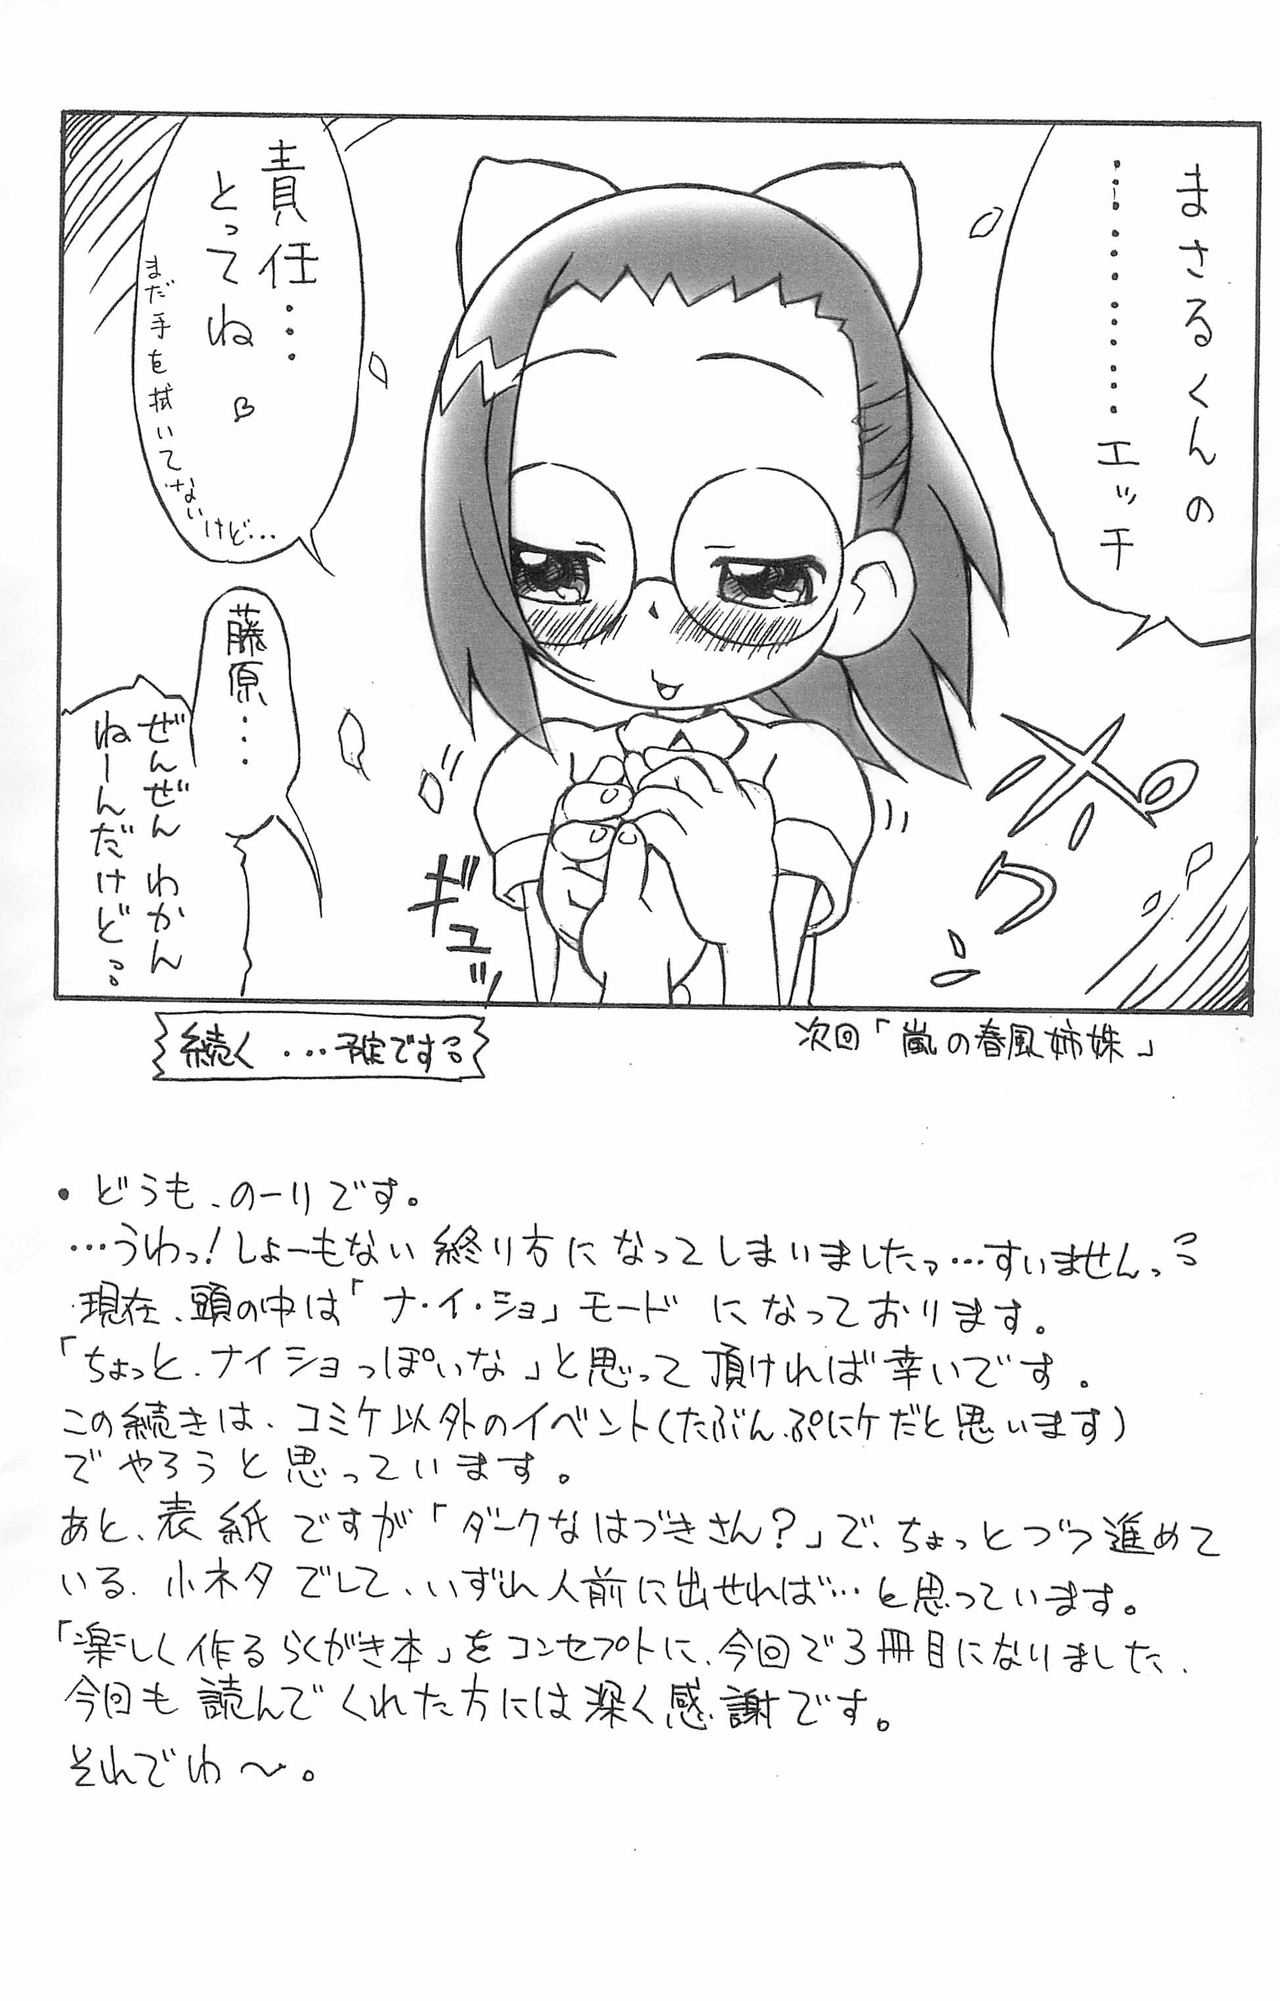 まさるくんの
‥‥‥‥‥‥エッチ
責任‥‥
とってね
まだ手を拭いてないけど…
藤原‥‥
ぜんぜん わかん
ねーんだけど。
ギュッ
次回「嵐の春風姉妹」
続く …予定です。
・どうも、のーりです。
…うわっ!しょーもない 終り方になってしまいましたっ…すいませんっ
現在、頭の中は「ナ・イ・ショ」モード になっております。
「ちょっと、ナイショっぽいな」と思って頂ければ幸いです。
この続きは、コミケ以外のイベント(たぶん、ぷにケだと思います)
でやろうと思っています。
あと、表紙ですが「ダークなはづきさん?」で、ちょっとづつ進めて
いる、小ネタでして、いずれ人前に出せれば…と思っています。
「楽しく作るらくがき本」をコンセプトに、今回で3冊目になりました、
今回も読んでくれた方には深く感謝です。
それでわ〜。